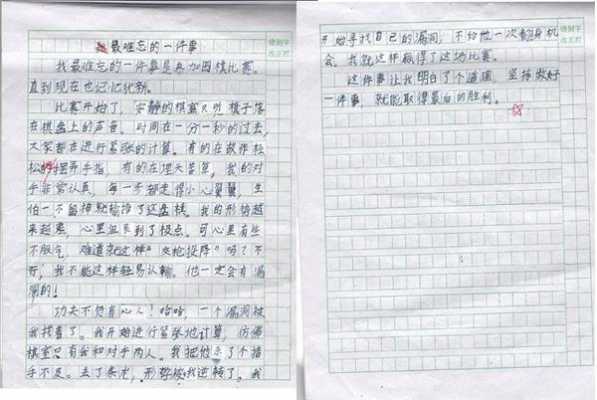 最难忘的一件事
我最难忘的一件事是参加围棋比赛。
直到现在也记忆犹新。
比赛开始了,安静的棋室只听棋子落
在棋盘上的声音。时间在一分一秒的过去,
大家都在进行紧张的计算。有的在故作轻
松的摆弄手指,有的在埋头苦算,我的对
手非常认真,每一步都走得小心翼翼,生
怕一不留神就输掉了这盘棋。我的形势越
来越差,心里沮丧到了极点。可心里有些
不服气,难道就这样“交枪投降”吗?不
行,我不能这样轻易认输。他一定会有漏
洞的!
功夫不负有心人!哈哈,一个漏洞被
我找着了。我开始进行紧张地计算,仿佛
棋室只有我和对手两人。我把他杀了个措
手不及。去了条龙,形势被我逆转了。我
开始寻找自己的漏洞,不给他一次翻身机
会。我就这样赢得了这场比赛。
这件事让我明白了个道理,坚持做好
一件事,就能取得最后的胜利。